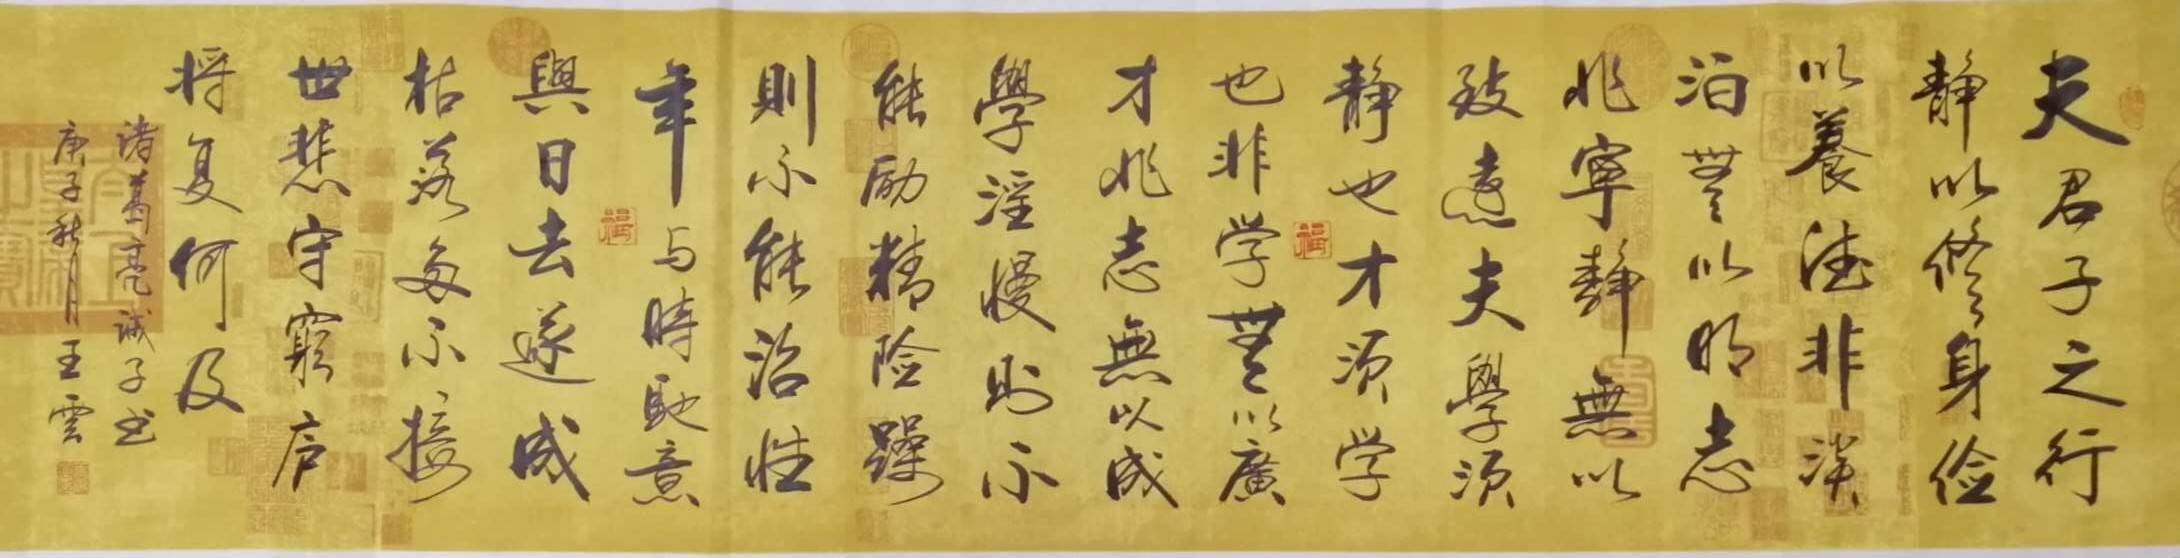 夫君子之行
静以修身俭
以養德非淡
泊無以明志
非寧静無以
致遠夫學须
静也才须学
也非学無以廣
才非志無以成
學淫慢则不
能励精险躁
則不能治性
年与時馳意
與日去遂成
枯落多不接
世悲守窮庐
将复何及
诸葛亮诫子书
庚子秋月王雲